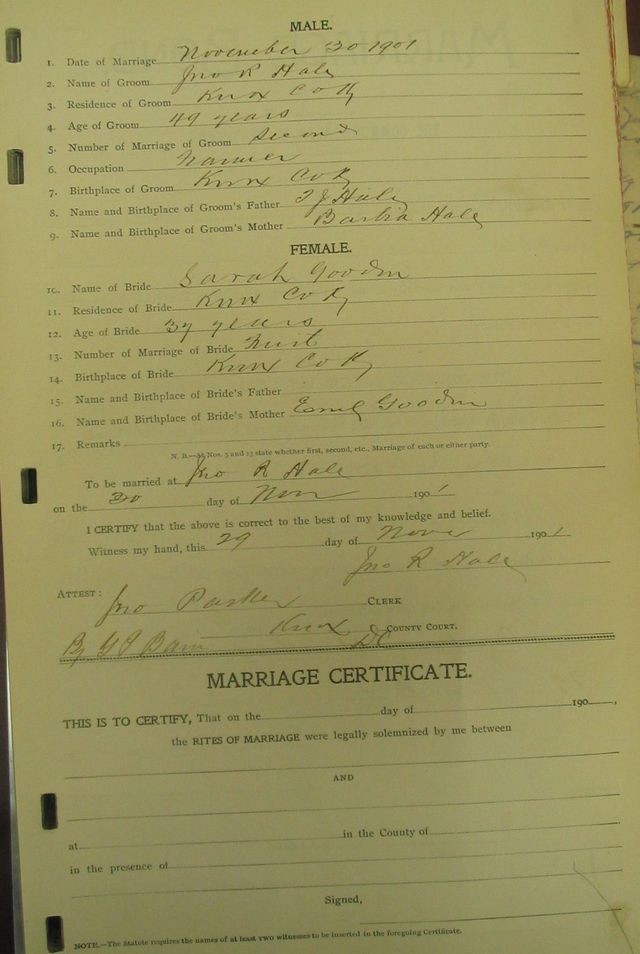 MALE.
1. Date of Marriage November 30 1901
2. Name of Groom Jno R Hale
3. Residence of Groom Knox Co Ky
4. Age of Groom 49 years
5. Number of Marriage of Groom Second
6. Occupation Farmer
7. Birthplace of Groom Knox Co Ky
8. Name and Birthplace of Groom's Father T J Hale
9. Name and Birthplace of Groom's Mother Barbra Hale
FEMALE.
10. Name of Bride Sarah Goodin
11. Residence of Bride Knox Co Ky
12. Age of Bride 37 years
13. Number of Marriage of Bride First
14. Birthplace of Bride Knox Co Ky
15. Name and Birthplace of Bride's Father
16. Name and Birthplace of Bride's Mother Goodin
17. Remarks
N. B.—At Nos. 5 and 13 state whether first, second, etc., Marriage of each or either party.
To be married at Jno R Hale
on the 30 day of Nov 1901
I CERTIFY that the above is correct to the best of my knowledge and belief.
Witness my hand, this 29 day of Nov 1901
Jno R Hale
ATTEST:
Jno Parker CLERK
Knox COUNTY COURT.
By G P Bain DC
MARRIAGE CERTIFICATE.
THIS IS TO CERTIFY, That on the day of 190 ,
the RITES OF MARRIAGE were legally solemnized by me between
AND
at in the County of
in the presence of
Signed,
NOTE.—The Statute requires the names of at least two witnesses to be inserted in the foregoing Certificate.